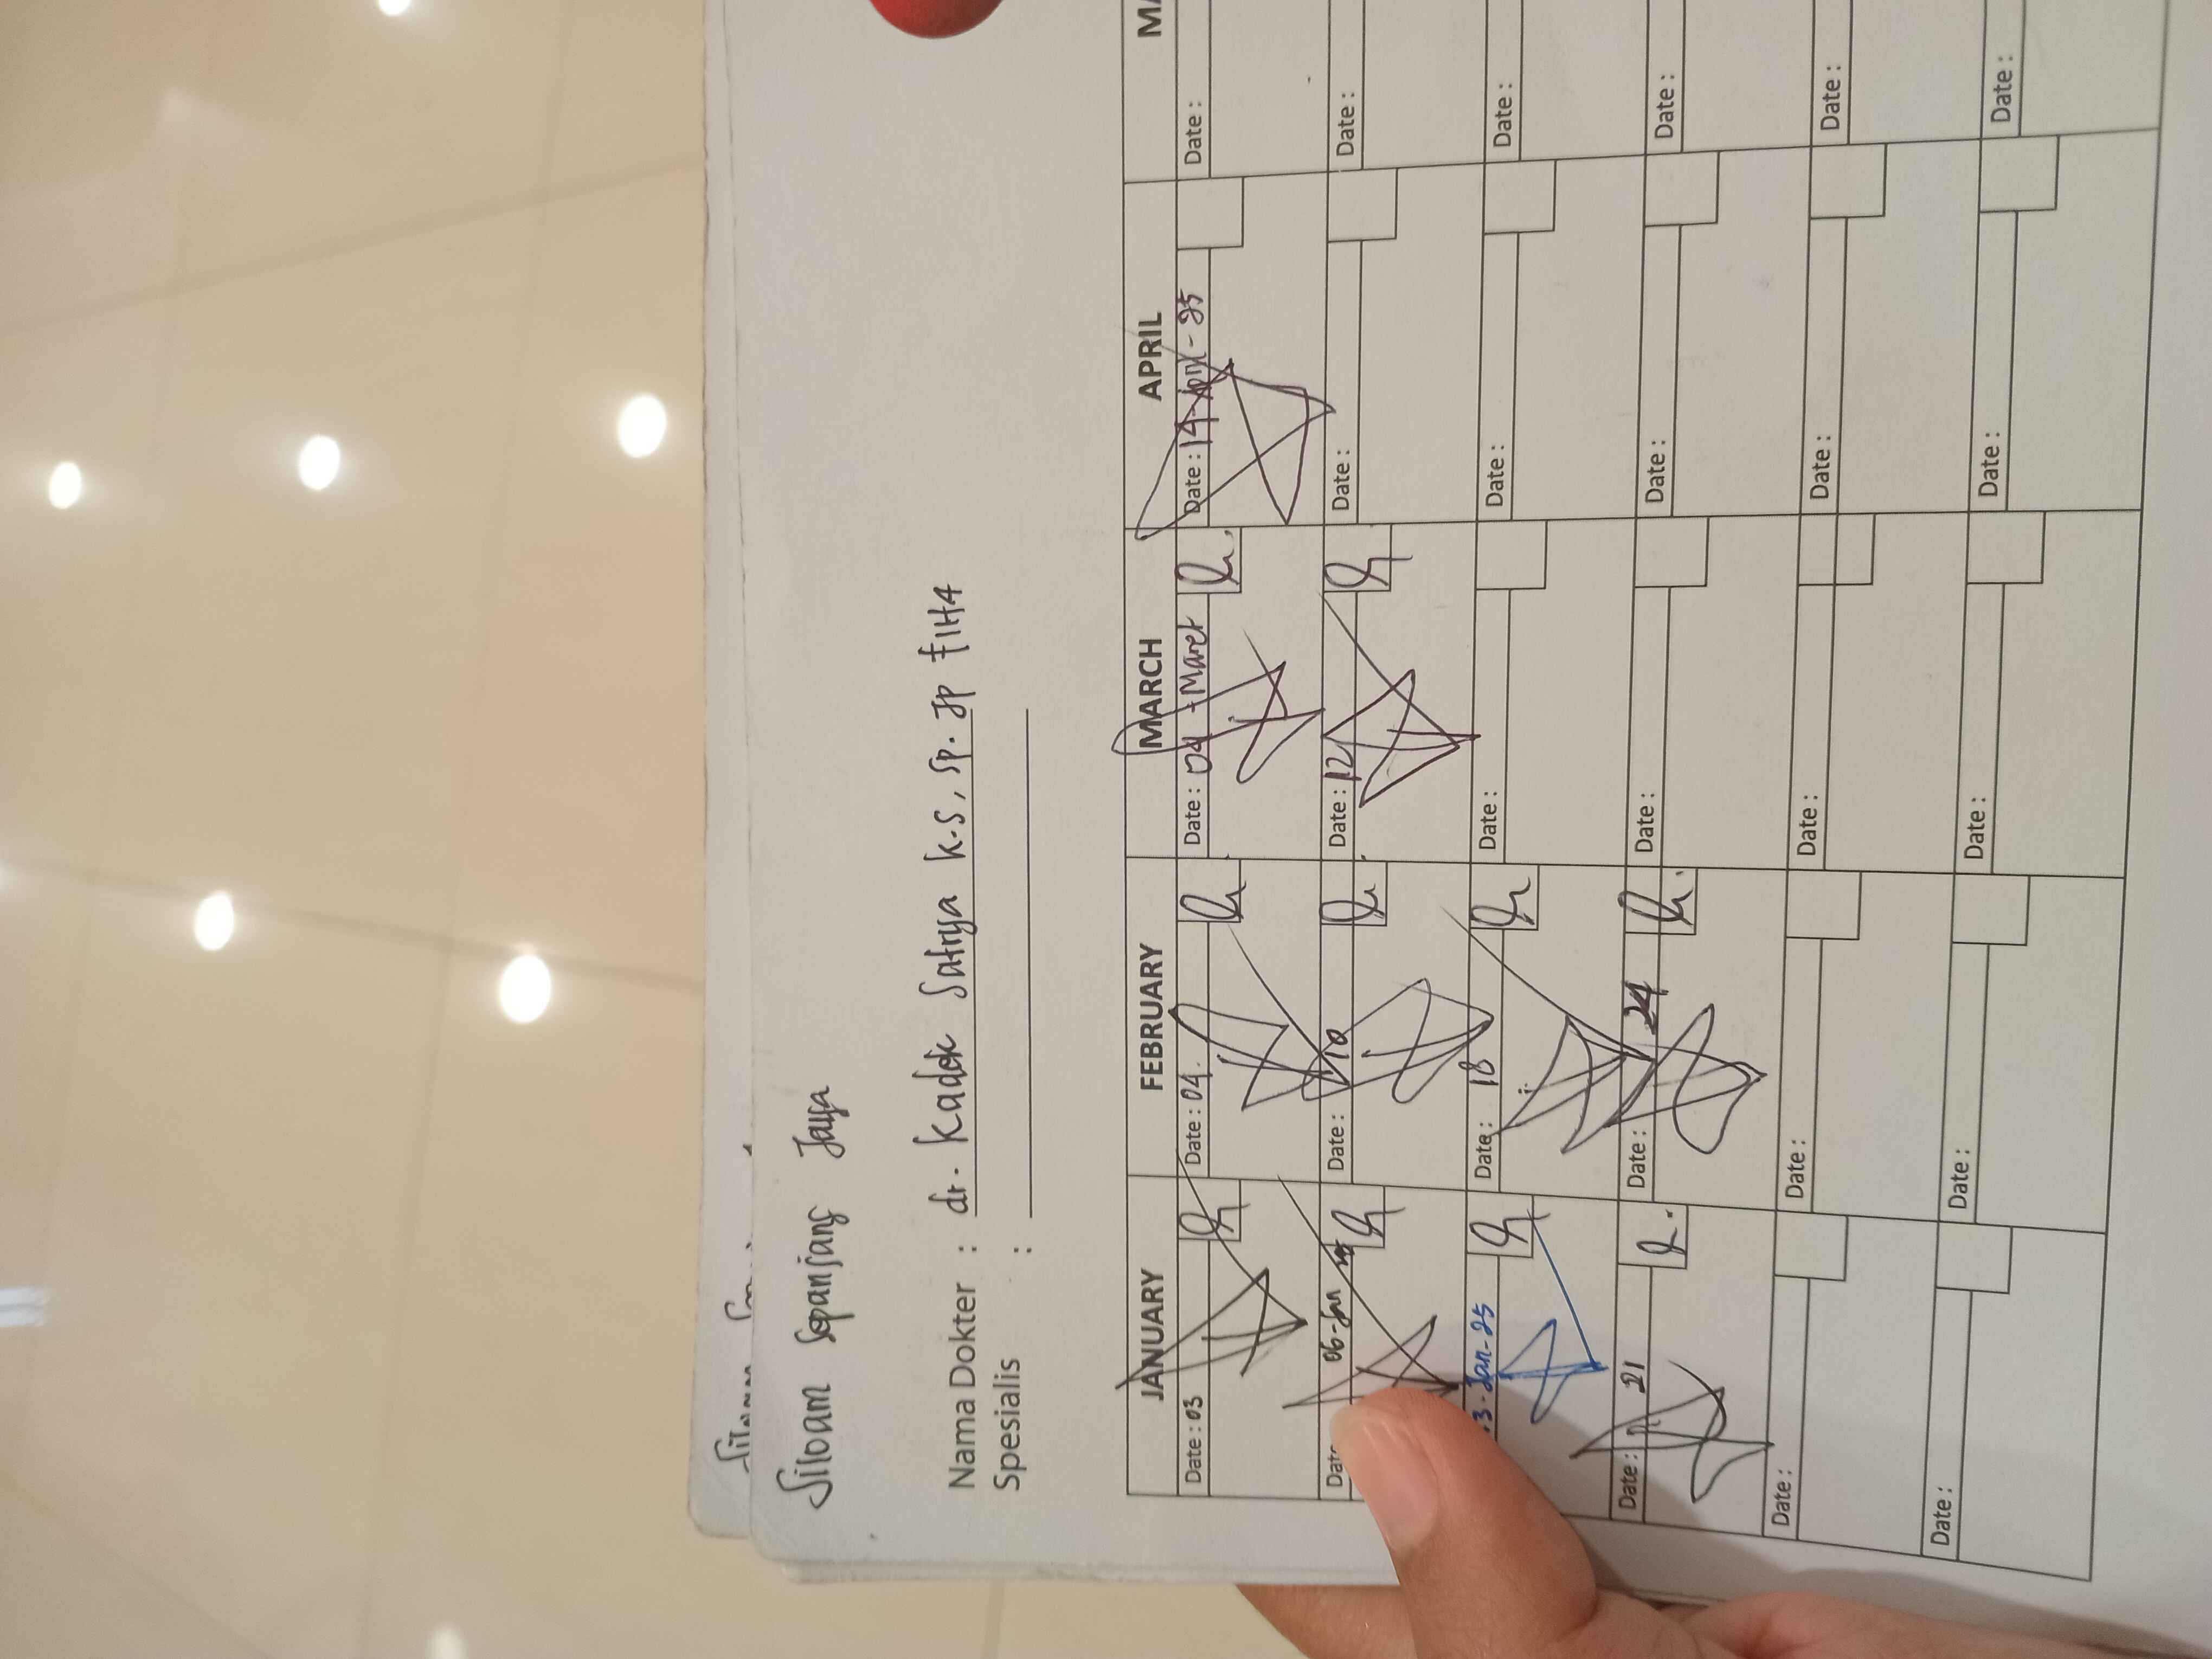 Siloam Sepanjang Jaya
Nama Dokter : dr. Kadek Satrya K.S, Sp. JP FIHA
Spesialis :
JANUARY FEBRUARY MARCH APRIL MA
Date : 03 Date : 04. Date : 04 - Maret Date : 14-April-25 Date :
Dat 06-Jan Date : 10 Date : 12 Date : Date :
3-Jan-25 Date : 18 Date : Date : Date :
Date : 21 Date : 24 Date : Date : Date :
Date : Date : Date : Date : Date :
Date : Date : Date : Date : Date :